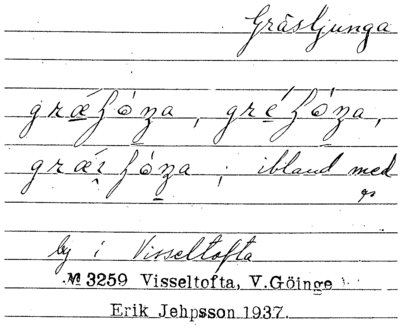 Gräsljunga
grǽ̲hȯn̲a, gré̲hȯn̲a,
græí̯hȯn̲a; ibland med
by i Visseltofta
M 3259 Visseltofta, V.Göinge
Erik Jehpsson 1937.